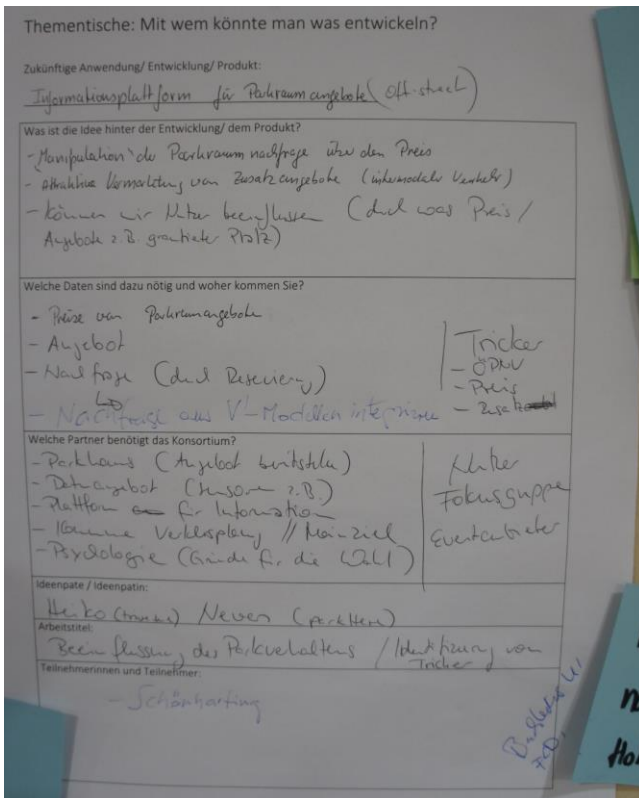 Thementische: Mit wem könnte man was entwickeln?
Zukünftige Anwendung/ Entwicklung/ Produkt:
Informationsplattform für Parkraumangebote (off-street)
Was ist die Idee hinter der Entwicklung/ dem Produkt?
- "Manipulation" der Parkraumnachfrage über den Preis
- attraktive Vermarktung von Zusatzangebote (intermodaler Verkehr)
- Können wir Nutzer beeinflussen (durch was Preis /
Angebote z.B. Platz)
Welche Daten sind dazu nötig und woher kommen Sie?
- Preise von Parkraumangebote
- Angebot
- Nachfrage (durch Reservierung)
- Nachfrage aus V'-Modellen integrieren
Tricker
- ÖPNV
- Preis
Welche Partner benötigt das Konsortium?
- Parkhaus (Angebot )
- Datenangebot (Sensoren z.B.)
- Plattform für Information
- Kommune Verkehrsplanung //
- Psychologie (Gründe für die Wahl)
Nutzer
Fokusgruppe
Eventanbieter
Ideenpate / Ideenpatin:
Heiko Neuen
Arbeitstitel:
Beeinflussung des Parkverhaltens / Identifizierung von
Tricker
Teilnehmerinnen und Teilnehmer:
- Schönharting
n
Ho